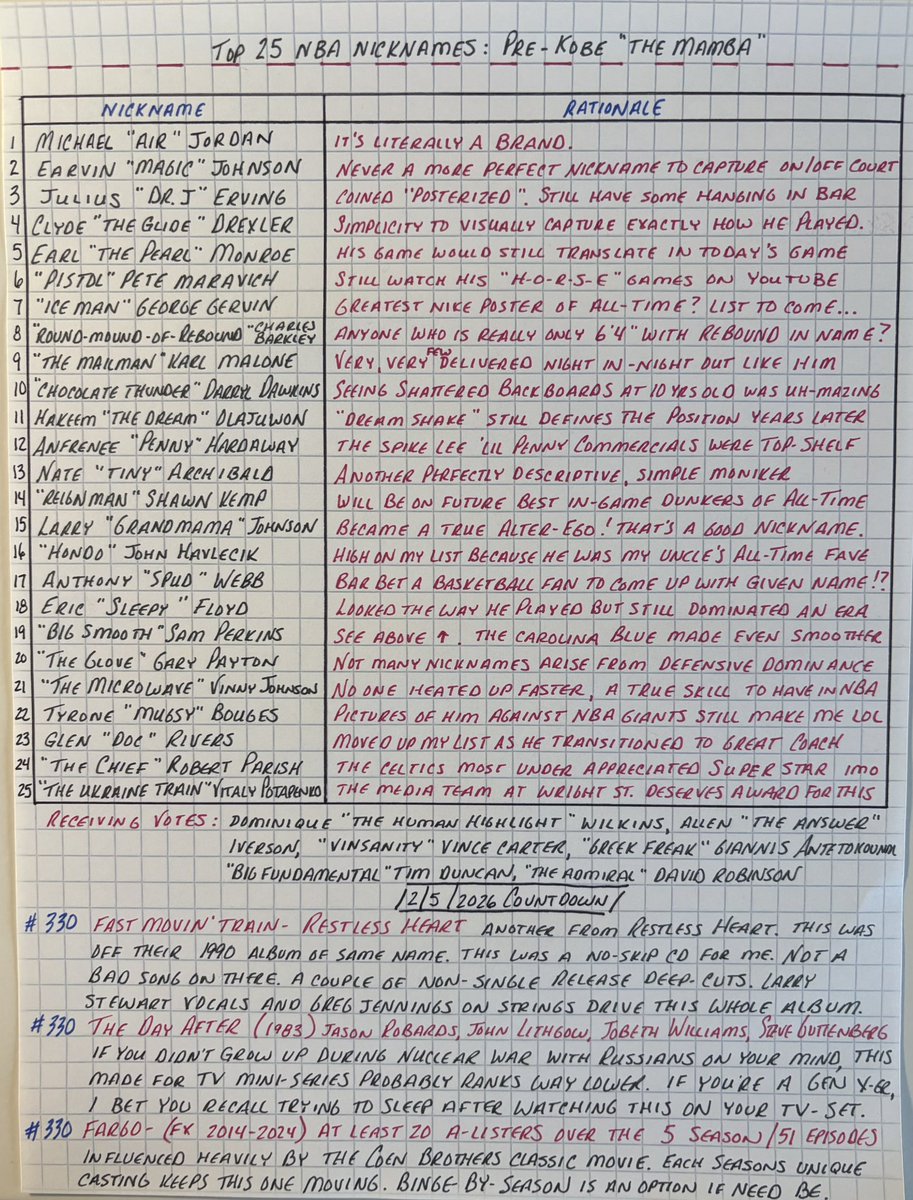 TOP 25 NBA NICKNAMES: PRE-KOBE "THE MAMBA"
NICKNAME RATIONALE
1 MICHAEL "AIR" JORDAN IT'S LITERALLY A BRAND.
2 EARVIN "MAGIC" JOHNSON NEVER A MORE PERFECT NICKNAME TO CAPTURE ON/OFF COURT
3 JULIUS "DR. J" ERVING COINED "POSTERIZED". STILL HAVE SOME HANGING IN BAR
4 CLYDE "THE GLIDE" DREXLER SIMPLICITY TO VISUALLY CAPTURE EXACTLY HOW HE PLAYED.
5 EARL "THE PEARL" MONROE HIS GAME WOULD STILL TRANSLATE IN TODAY'S GAME
6 "PISTOL" PETE MARAVICH STILL WATCH HIS "H-O-R-S-E" GAMES ON YOUTUBE
7 "ICE MAN" GEORGE GERVIN GREATEST NIKE POSTER OF ALL-TIME? LIST TO COME...
8 "ROUND-MOUND-OF-REBOUND" CHARLES BARKLEY ANYONE WHO IS REALLY ONLY 6'4" WITH REBOUND IN NAME?
9 "THE MAILMAN" KARL MALONE VERY, VERY FEW DELIVERED NIGHT IN-NIGHT OUT LIKE HIM
10 "CHOCOLATE THUNDER" DARRYL DAWKINS SEEING SHATTERED BACKBOARDS AT 10 YRS OLD WAS UH-MAZING
11 HAKEEM "THE DREAM" OLAJUWON "DREAM SHAKE" STILL DEFINES THE POSITION YEARS LATER
12 ANFRENEE "PENNY" HARDAWAY THE SPIKE LEE 'LIL PENNY COMMERCIALS WERE TOP-SHELF
13 NATE "TINY" ARCHIBALD ANOTHER PERFECTLY DESCRIPTIVE, SIMPLE MONIKER
14 "REIGN MAN" SHAWN KEMP WILL BE ON FUTURE BEST IN-GAME DUNKERS OF ALL-TIME
15 LARRY "GRANDMAMA" JOHNSON BECAME A TRUE ALTER-EGO! THAT'S A GOOD NICKNAME.
16 "HONDO" JOHN HAVLECIK HIGH ON MY LIST BECAUSE HE WAS MY UNCLE'S ALL-TIME FAVE
17 ANTHONY "SPUD" WEBB BAR BET A BASKETBALL FAN TO COME UP WITH GIVEN NAME!?
18 ERIC "SLEEPY" FLOYD LOOKED THE WAY HE PLAYED BUT STILL DOMINATED AN ERA
19 "BIG SMOOTH" SAM PERKINS SEE ABOVE ↑. THE CAROLINA BLUE MADE EVEN SMOOTHER
20 "THE GLOVE" GARY PAYTON NOT MANY NICKNAMES ARISE FROM DEFENSIVE DOMINANCE
21 "THE MICROWAVE" VINNY JOHNSON NO ONE HEATED UP FASTER, A TRUE SKILL TO HAVE IN NBA
22 TYRONE "MUGSY" BOUGES PICTURES OF HIM AGAINST NBA GIANTS STILL MAKE ME LOL
23 GLEN "DOC" RIVERS MOVED UP MY LIST AS HE TRANSITIONED TO GREAT COACH
24 "THE CHIEF" ROBERT PARISH THE CELTICS MOST UNDER APPRECIATED SUPER STAR IMO
25 "THE UKRAINE TRAIN" VITALY POTAPENKO THE MEDIA TEAM AT WRIGHT ST. DESERVES AWARD FOR THIS
RECEIVING VOTES: DOMINIQUE "THE HUMAN HIGHLIGHT" WILKINS, ALLEN "THE ANSWER"
IVERSON, "VINSANITY" VINCE CARTER, "GREEK FREAK" GIANNIS ANTETOKOUNM
"BIG FUNDAMENTAL" TIM DUNCAN, "THE ADMIRAL" DAVID ROBINSON
/2/5/2026 COUNTDOWN/
#330 FAST MOVIN' TRAIN- RESTLESS HEART ANOTHER FROM RESTLESS HEART. THIS WAS
OFF THEIR 1990 ALBUM OF SAME NAME. THIS WAS A NO-SKIP CD FOR ME. NOT A
BAD SONG ON THERE. A COUPLE OF NON-SINGLE RELEASE DEEP-CUTS. LARRY
STEWART VOCALS AND GREG JENNINGS ON STRINGS DRIVE THIS WHOLE ALBUM.
#330 THE DAY AFTER (1983) JASON ROBARDS, JOHN LITHGOW, JOBETH WILLIAMS, STEVE GUTTENBERG
IF YOU DIDN'T GROW UP DURING NUCLEAR WAR WITH RUSSIANS ON YOUR MIND, THIS
MADE FOR TV MINI-SERIES PROBABLY RANKS WAY LOWER. IF YOU'RE A GEN X-ER,
I BET YOU RECALL TRYING TO SLEEP AFTER WATCHING THIS ON YOUR TV-SET.
#330 FARGO- (FX 2014-2024) AT LEAST 20 A-LISTERS OVER THE 5 SEASON/51 EPISODES
INFLUENCED HEAVILY BY THE COEN BROTHERS CLASSIC MOVIE. EACH SEASONS UNIQUE
CASTING KEEPS THIS ONE MOVING. BINGE BY-SEASON IS AN OPTION IF NEED BE.